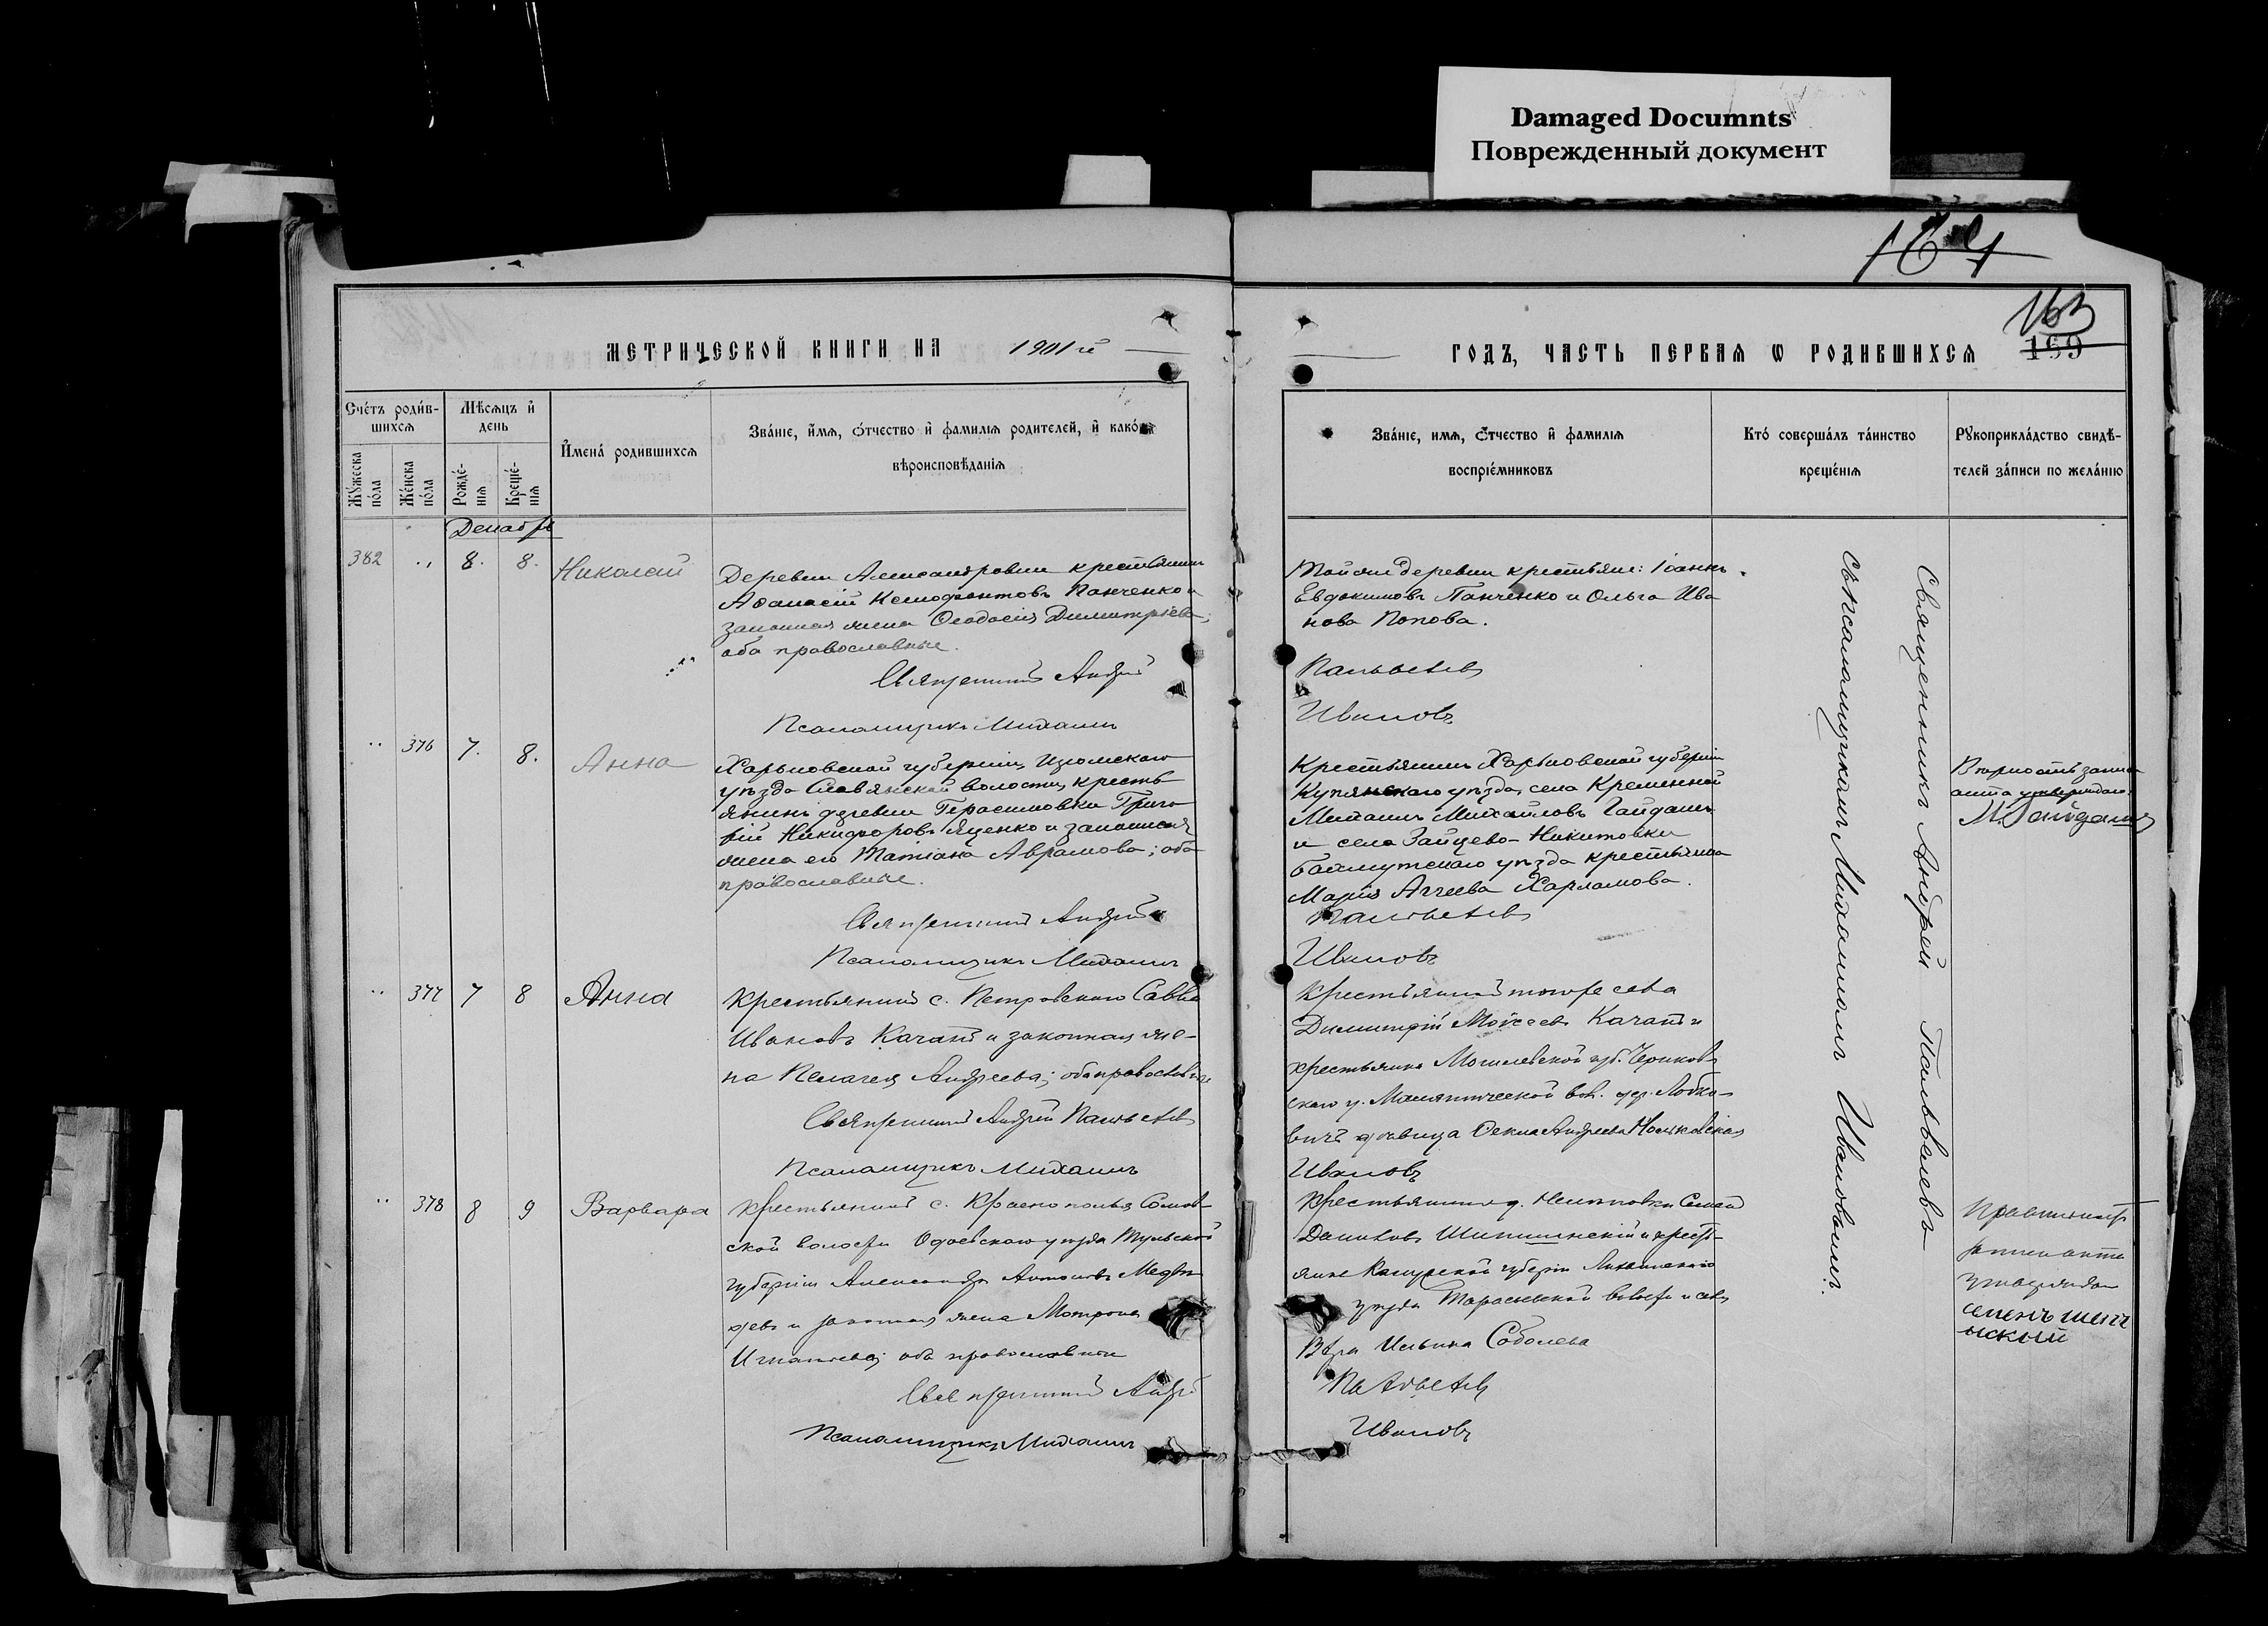 Damaged Documnts
Поврежденный документ
164
163
159
МЕТРИЧЕСКОЙ КНИГИ НА 1901 й
ГОДЪ, ЧАСТЬ ПЕРВАЯ Ѡ РОДИВШИХСЯ
Счетъ родившихся
Мѣсяцъ и день
Имена родившихся
Званіе, имя, отчество и фамилія родителей, и какой
вѣроисповѣданія
Мужеска пола
Женска пола
Рожденія
Крещенія
Званіе, имя, отчество и фамилія
воспріемниковъ
Кто совершалъ таинство
крещенія
Рукоприкладство свидѣ-
телей записи по желанію
Декабрь
382 " 8. 8. Николай
Деревни Александровки крестьянинъ
Аѳанасій Ксенофонтовъ Панченко и
законная жена Ѳеодосія Димитріева;
оба православные.
Священникъ Андрей
Псаломщикъ Михаилъ
Той же деревни крестьяне: Іоаннъ
Евдокимовъ Панченко и Ольга Ива
нова Попова.
Ивановъ
" 376 7. 8. Анна
Харьковской губерніи, Изюмскаго
уѣзда Славянской волости, кресть
янинъ деревни Герасимовки Григо
рій Никифоровъ Яценко и законная
жена его Татіана Аврамова; оба
православные.
Священникъ Андрей
Псаломщикъ Михаилъ
Крестьянинъ Харьковской губерніи
Купянскаго уѣзда, села Кременной
Михаилъ Михайловъ Гайдашъ
и села Зайцево-Никитовки
Бахмутскаго уѣзда крестьянка
Марія Аггеева Харламова.
Ивановъ
М. Гайдашъ
" 377 7 8 Анна
Крестьянинъ с. Петровскаго Савва
Ивановъ Качанъ и законная же-
на Пелагея Андреева; оба православные
Священникъ Андрей
Псаломщикъ Михаилъ
Крестьянинъ того же села
Димитрій Моисеевъ Качанъ и
крестьянка Могилевской губ. Чериков
скаго у. вол. дер. Лобко-
вичъ дѣвица Ѳекла Андреева
Ивановъ
" 378 8 9 Варвара
Крестьянинъ с. Краснополья Сомов-
ской волости Одоевскаго уѣзда Тульской
губерніи Александръ Антоновъ Медвѣ
девъ и законная жена Матрона
Игнатьева; оба православные
Священникъ Андрей
Псаломщикъ Михаилъ
Крестьянинъ д. Семенъ
Даниловъ и крест-
янка Калужской губерніи
уѣзда волости и села
Вѣра Ильина Соболева
Ивановъ
Семенъ
Священникъ Андрей
съ псаломщикомъ Михаиломъ Ивановымъ.